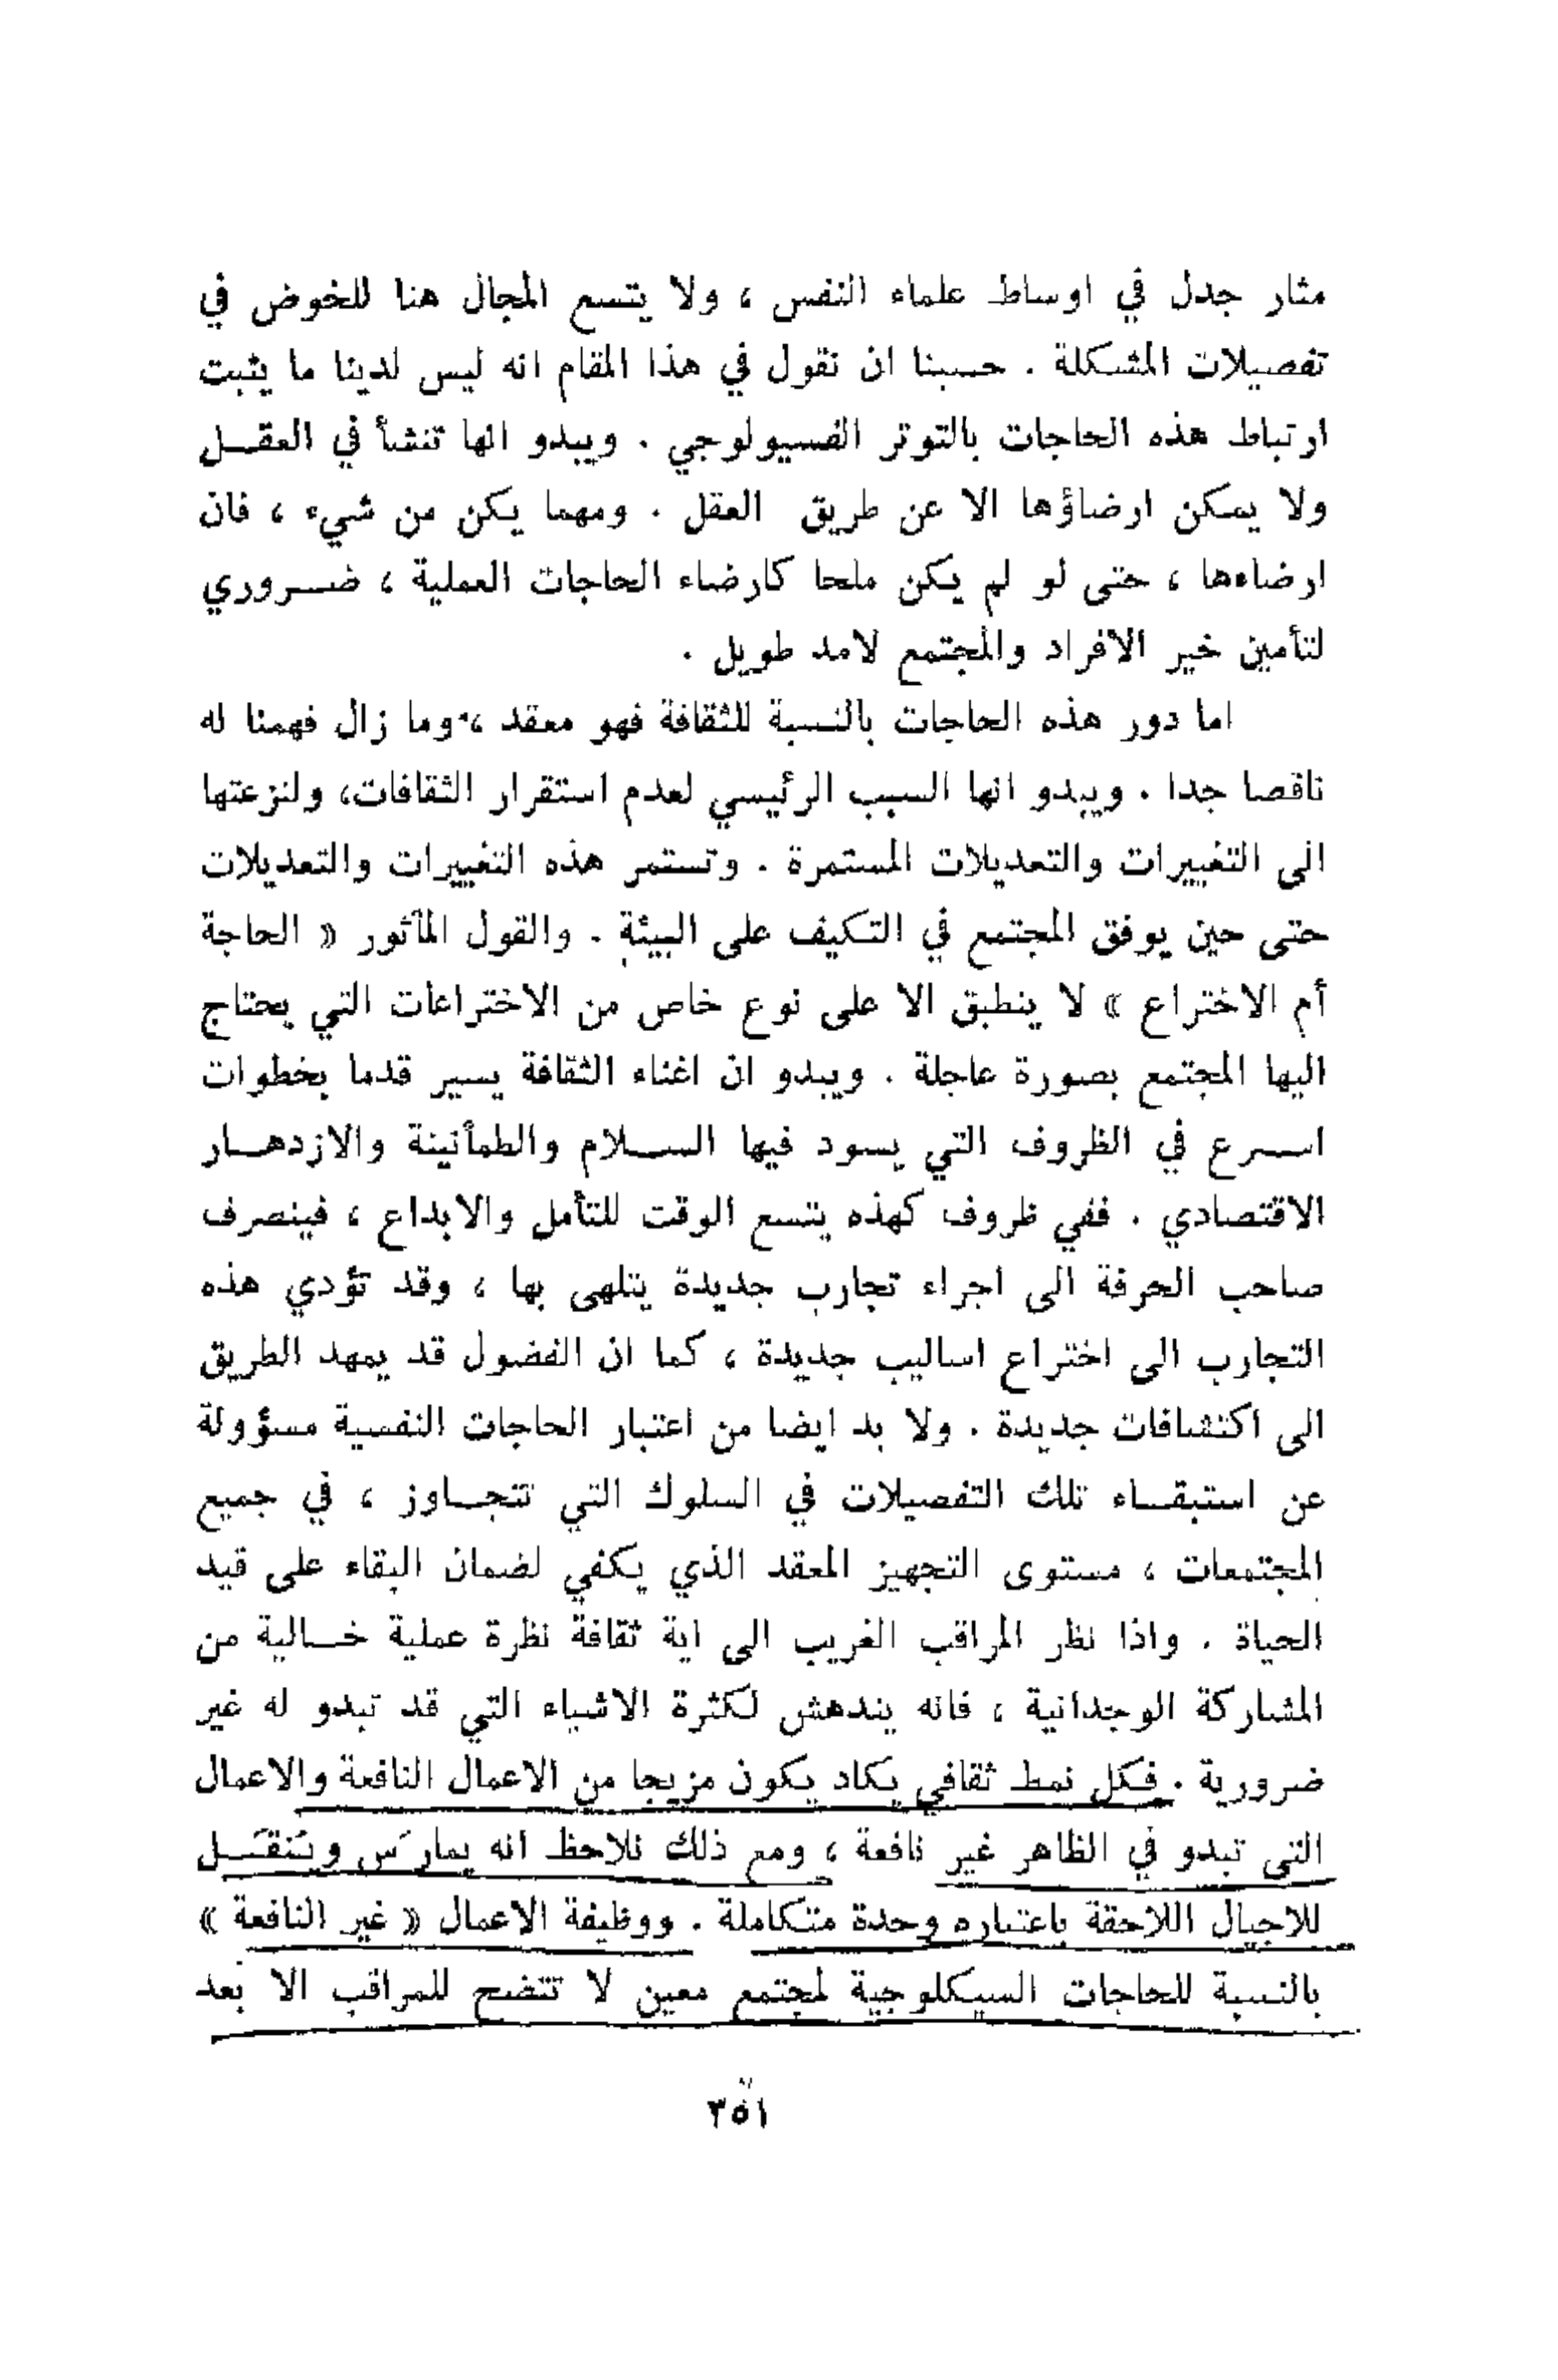 مثار جدل في اوساط علماء النفس ، ولا يتسع المجال هنا للخوض في
تفصيلات المشكلة . حسبنا ان نقول في هذا المقام انه ليس لدينا ما يثبت
ارتباط هذه الحاجات بالتوتر الفسيولوجي . ويبدو انها تنشأ في العقـل
ولا يمكن ارضاؤها الا عن طريق العقل . ومهما يكن من شيء ، فان
ارضاءها ، حتى لو لم يكن ملحا كارضاء الحاجات العملية ، ضـروري
لتأمين خير الافراد والمجتمع لامد طويل .
اما دور هذه الحاجات بالنسبة للثقافة فهو معقد ، وما زال فهمنا له
ناقصا جدا . ويبدو انها السبب الرئيسي لعدم استقرار الثقافات، ولنزعتها
الى التغييرات والتعديلات المستمرة . وتستمر هذه التغييرات والتعديلات
حتى حين يوفق المجتمع في التكيف على البيئة . والقول المأثور « الحاجة
أم الاختراع » لا ينطبق الا على نوع خاص من الاختراعات التي يحتاج
اليها المجتمع بصورة عاجلة . ويبدو ان اغناء الثقافة يسير قدما بخطوات
اسـرع في الظروف التي يسود فيها السـلام والطمأنينة والازدهـار
الاقتصادي . ففي ظروف كهذه يتسع الوقت للتأمل والابداع ، فينصرف
صاحب الحرفة الى اجراء تجارب جديدة يتلهى بها ، وقد تؤدي هذه
التجارب الى اختراع اساليب جديدة ، كما ان الفضول قد يمهد الطريق
الى اكتشافات جديدة . ولا بد ايضا من اعتبار الحاجات النفسية مسؤولة
عن استبقـاء تلك التفصيلات في السلوك التي تتجـاوز ، في جميع
المجتمعات ، مستوى التجهيز المعقد الذي يكفي لضمان البقاء على قيد
الحياة . واذا نظر المراقب الغريب الى اية ثقافة نظرة عملية خـالية من
المشاركة الوجدانية ، فانه يندهش لكثرة الاشياء التي قد تبدو له غير
ضرورية . فكل نمط ثقافي يكاد يكون مزيجا من الاعمال النافعة والاعمال
التي تبدو في الظاهر غير نافعة ، ومع ذلك نلاحظ انه يمارَس ويُنقَـل
للاجيال اللاحقة باعتباره وحدة متكاملة . ووظيفة الاعمال « غير النافعة »
بالنسبة للحاجات السيكلوجية لمجتمع معين لا تتضح للمراقب الا بعد
٣٥١